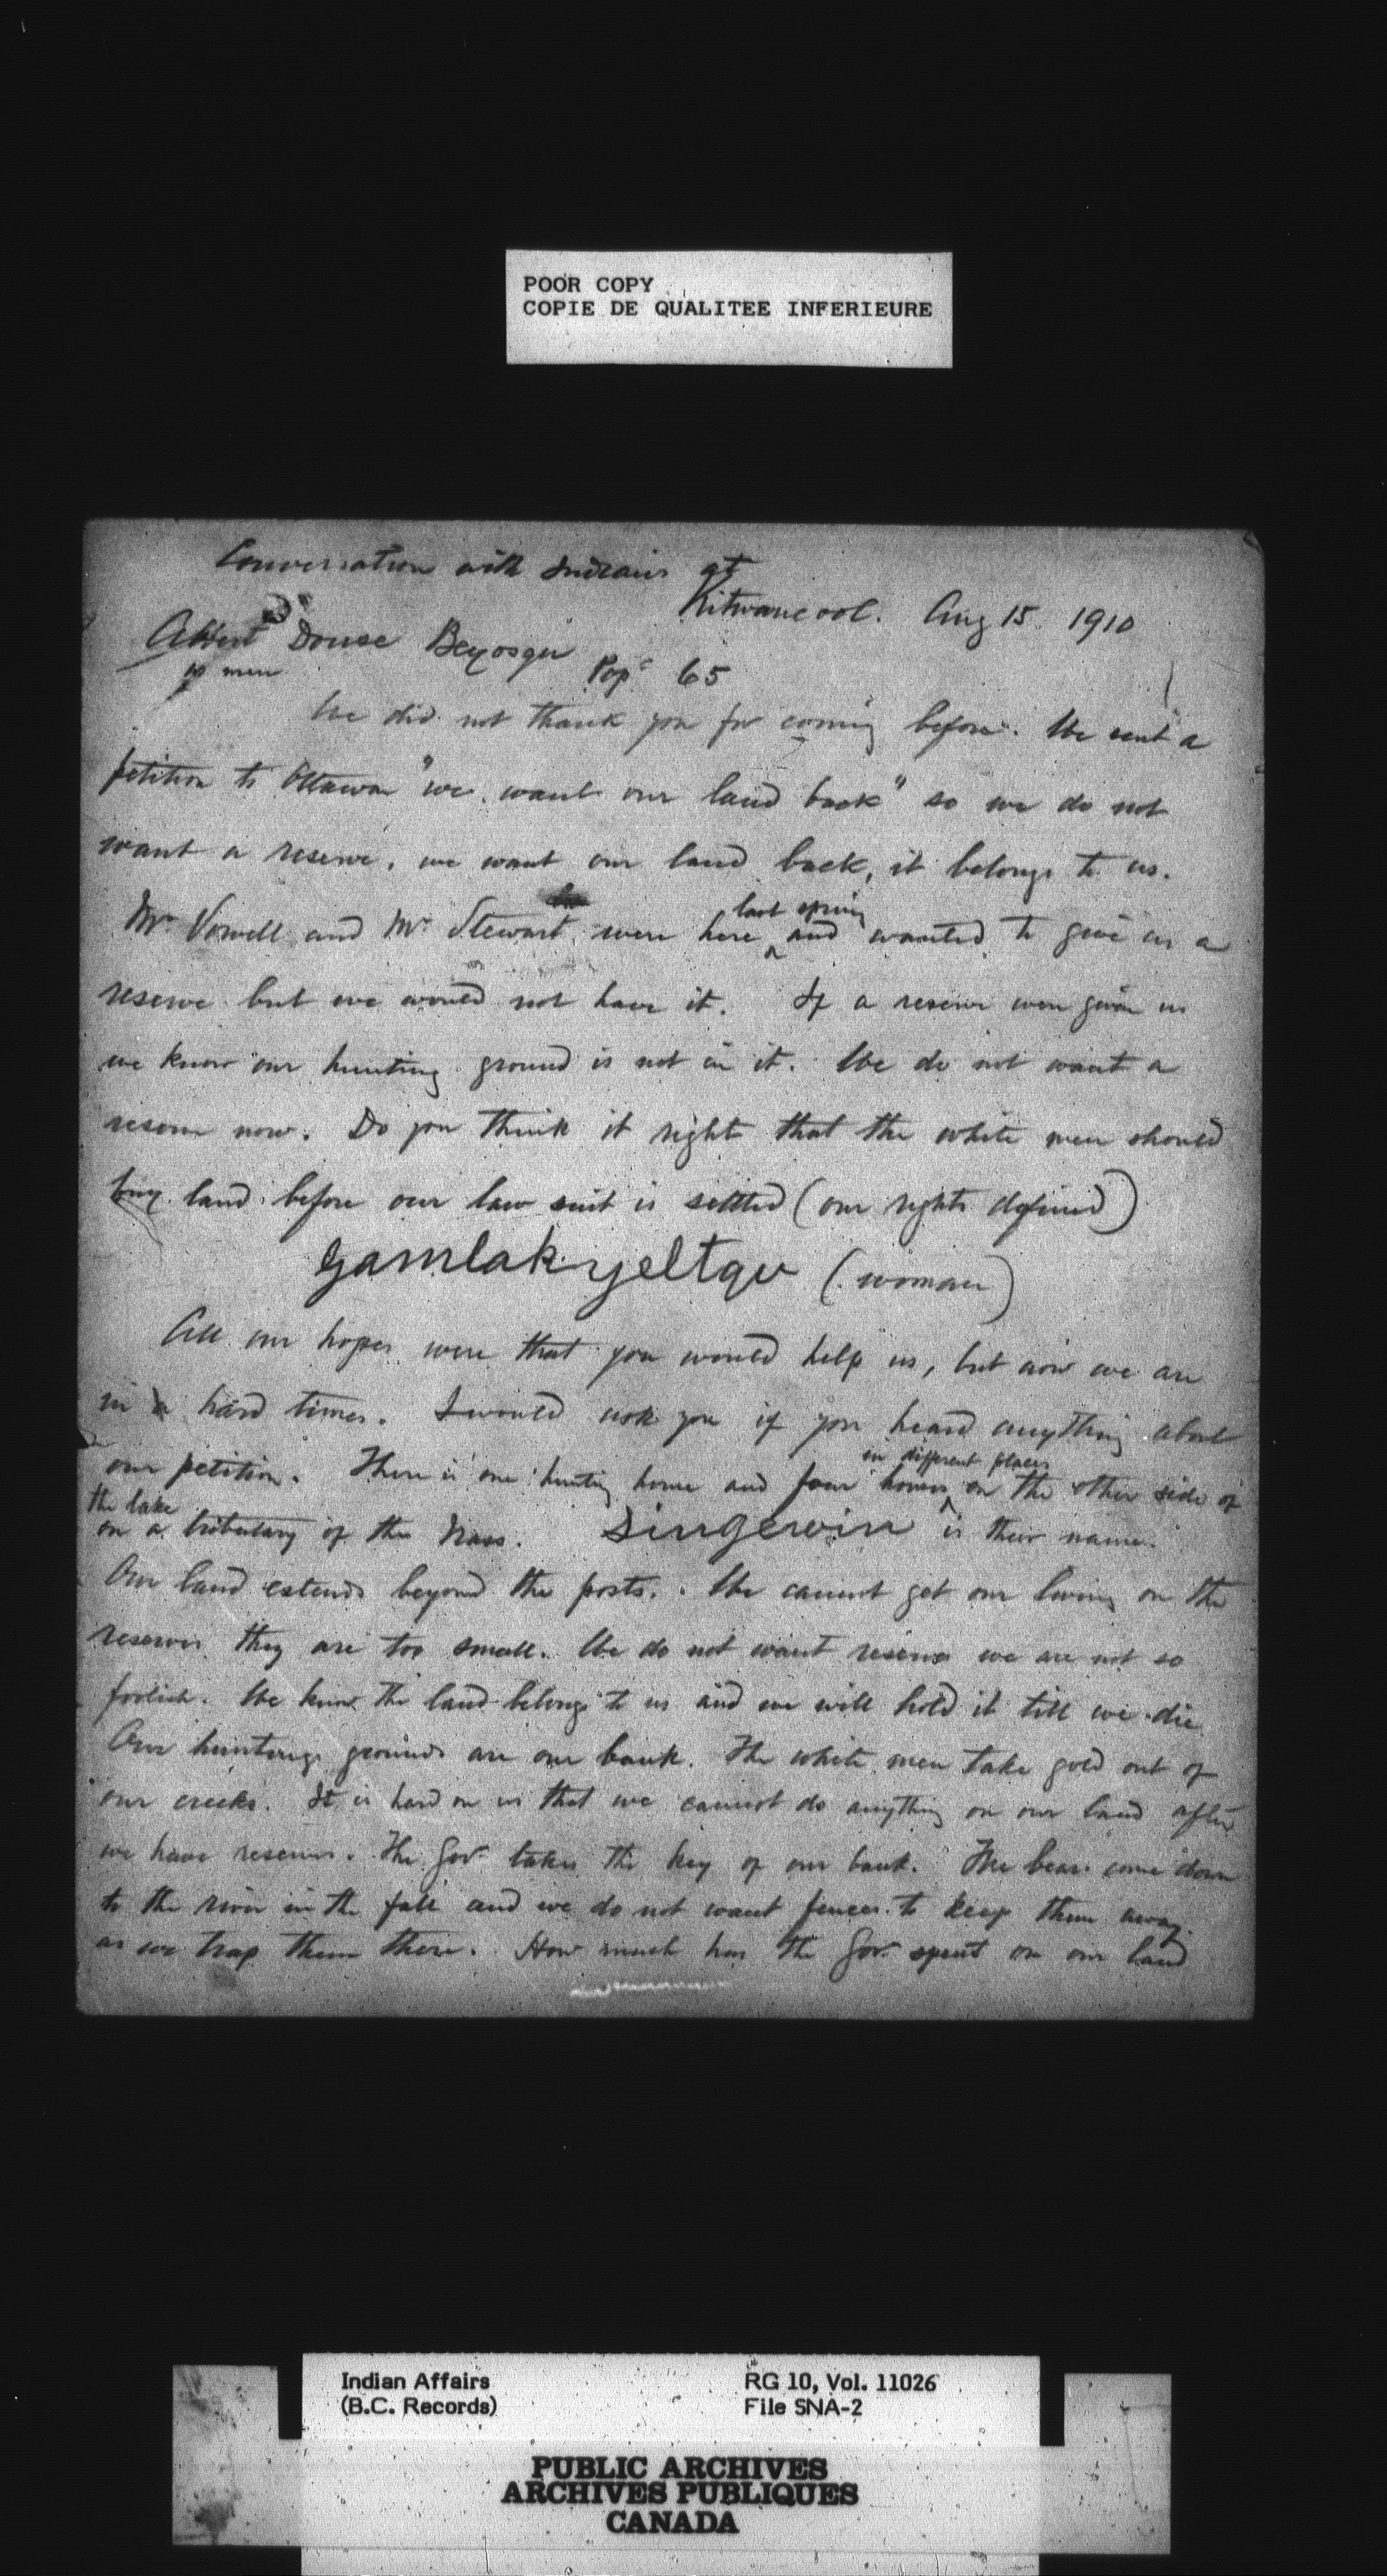 POOR COPY
COPIE DE QUALITEE INFERIEURE
Conversation with Indians at
Kitwancool. Aug 15 1910
Albert Douse Beyosqu
10 men Pop 65
We did not thank you for coming before. We sent a
petition to Ottawa "we want our land back" so we do not
want a reserve, we want our land back, it belongs to us.
last spring
Mr Vowell and Mr Stewart were here and wanted to give us a
reserve but we would not have it. If a reserve were given us
we know our hunting ground is not in it. We do not want a
reserve now. Do you think it right that the white men should
buy land before our law suit is settled (our rights defined)
Gamlakyeltqu (woman)
All our hopes were that you would help us, but now we are
in hard times. I would ask you if you heard anything about
in different places
our petition. There is one hunting house and four houses on the other side of
the lake
on a tributary of the Nass. Singewin is their name.
Our land extends beyond the posts. We cannot get our living on the
reserves they are too small. We do not want reserves we are not so
foolish. We know the land belongs to us and we will hold it till we die
Our huntings grounds are our bank. The white men take gold out of
our creeks. It is hard on us that we cannot do anything on our land after
we have reserves. The Gov takes the key of our bank. The bears come down
to the river in the fall and we do not want fences to keep them away.
as we trap them there. How much has the Gov spent on our land
Indian Affairs
(B.C. Records)
RG 10, Vol. 11026
File SNA-2
PUBLIC ARCHIVES
ARCHIVES PUBLIQUES
CANADA